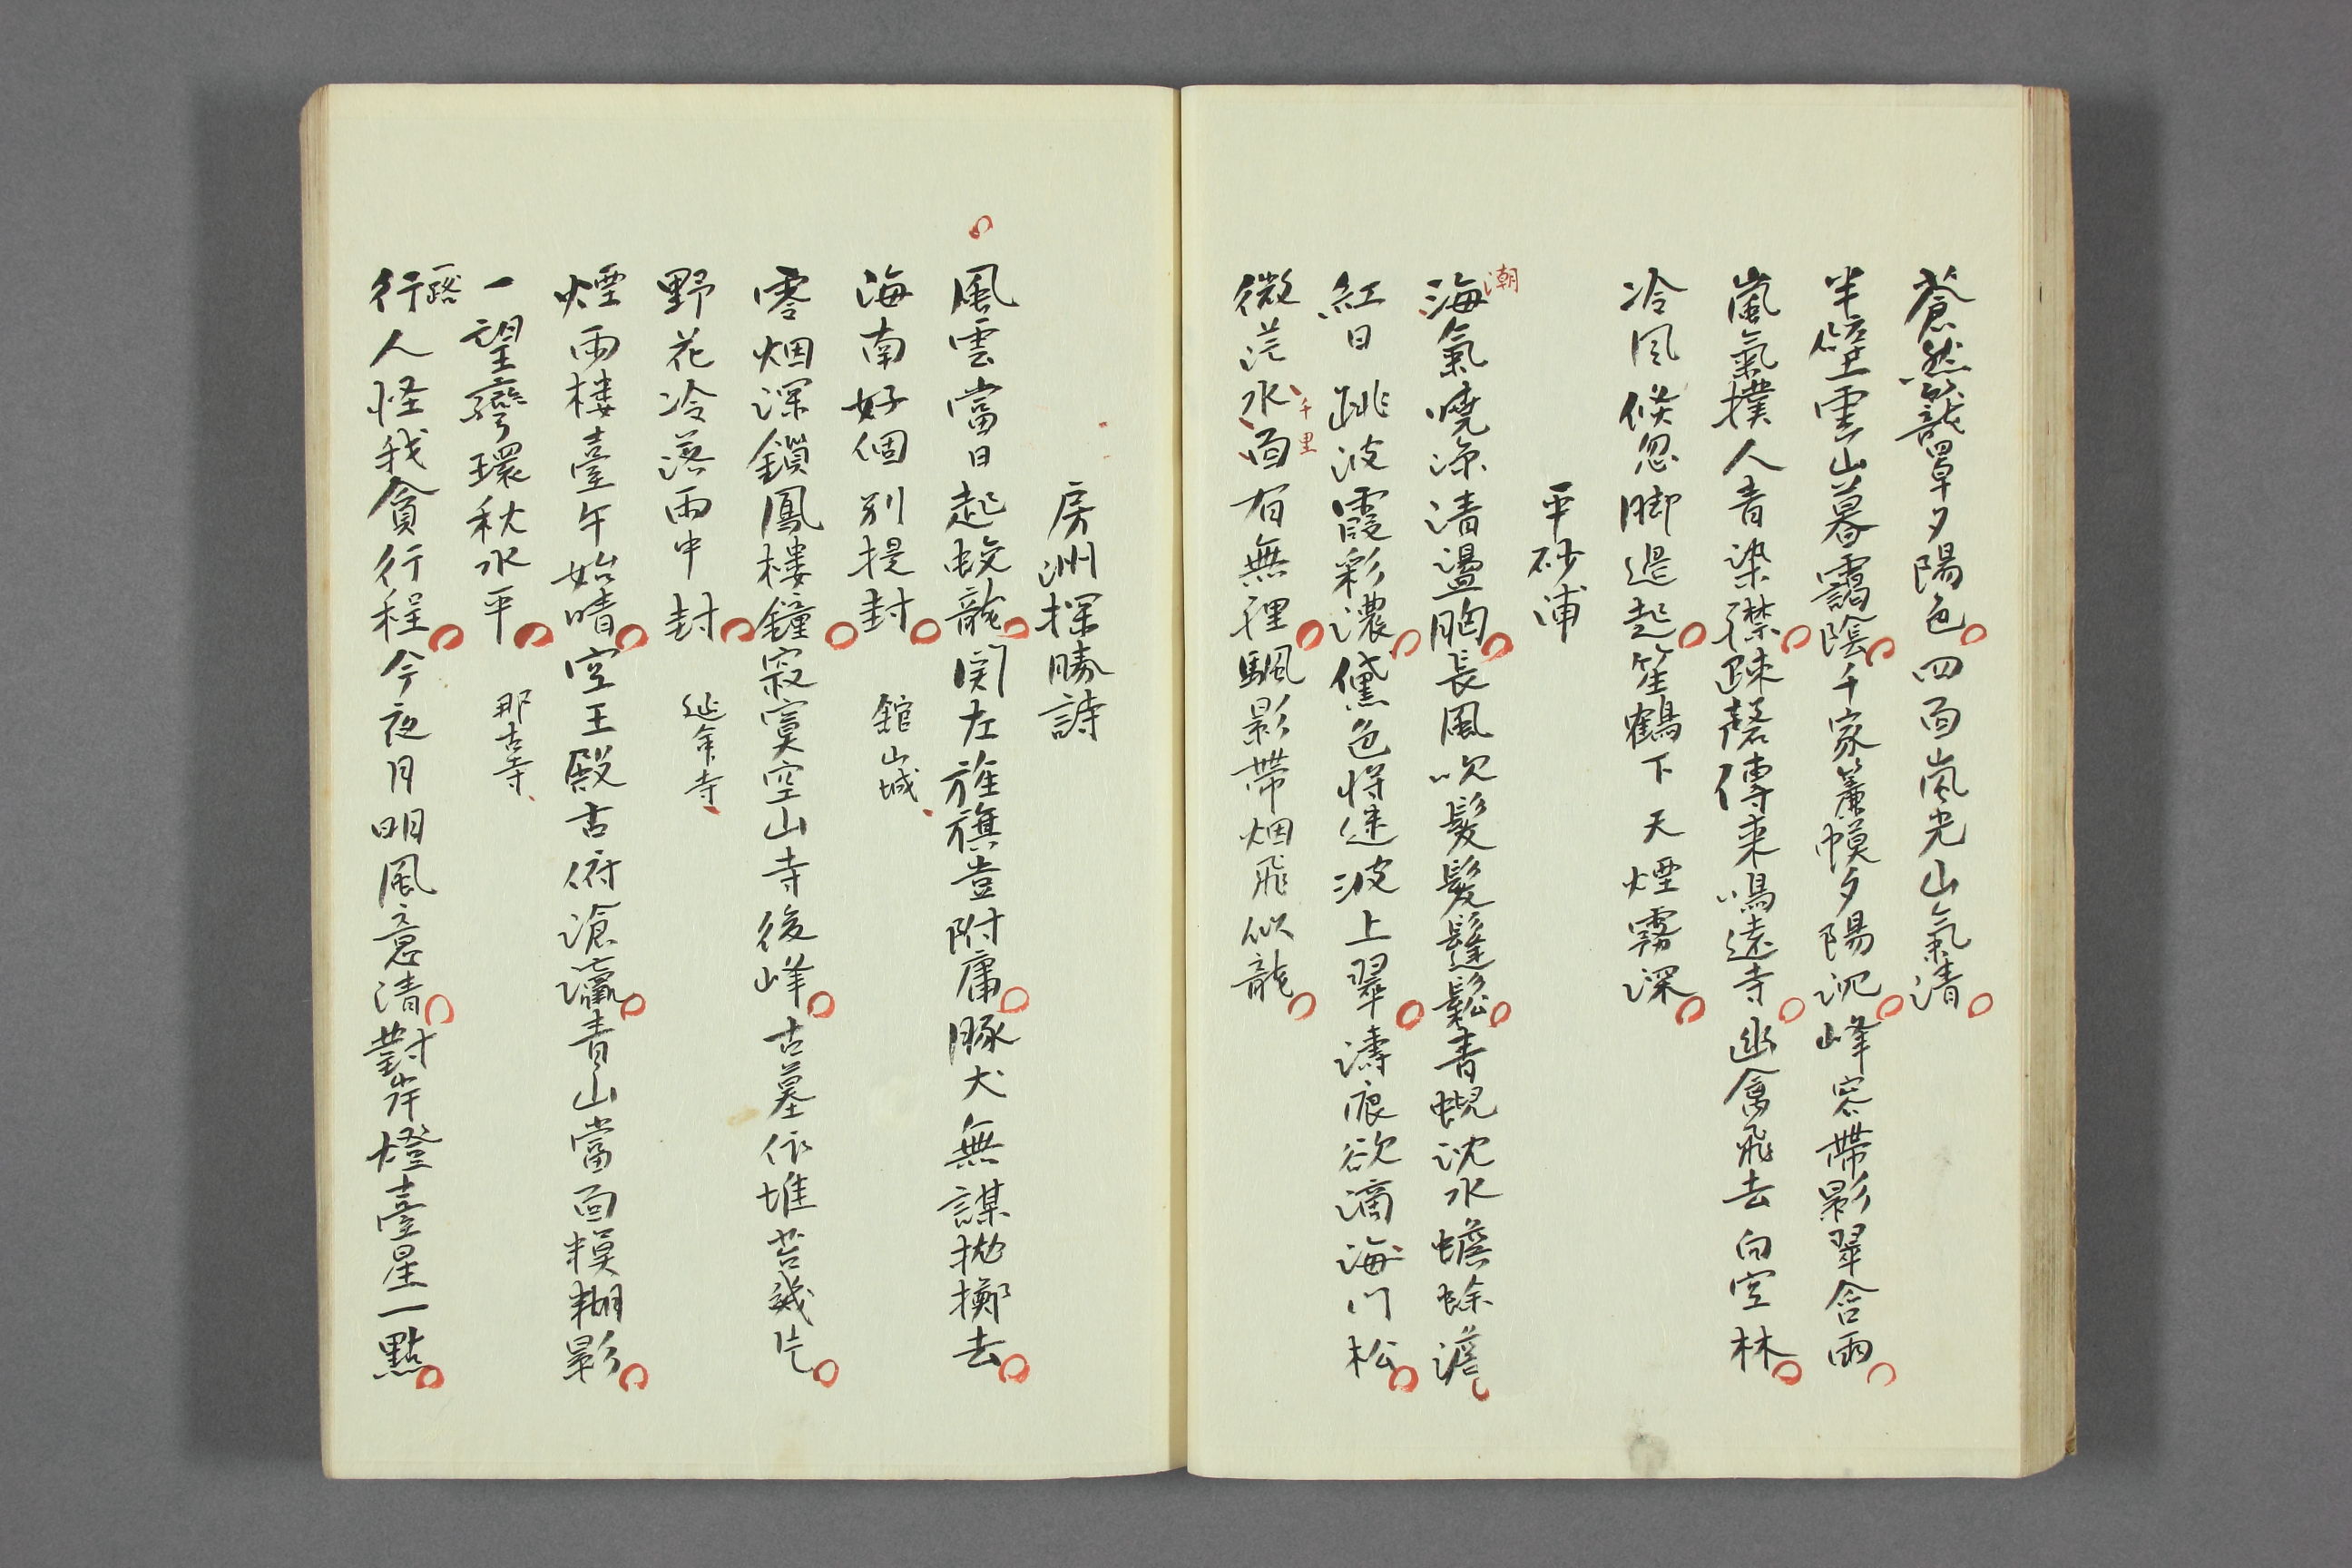 蒼然籠罩夕陽色四面嵐光山氣清
半壁雲山暮靄陰千家簾幙夕陽沉峰容帶影翠含雨
嵐氣撲人青染襟疎磬傳来鳴遠寺幽禽飛去向空林
冷風倏忽脚邊起笙鶴下天煙霧深
平砂浦
潮
海氣曉涼清盪胸長風吹髮髮鬔鬆青蜺沈水蟾蜍澹
紅日跳波霞彩濃黛色将迷波上翠濤痕欲滴海門松
千里
微茫水面有無裡颿影帶烟飛似龍
房洲探勝詩
風雲當日起蛟龍関左旌旗豈附庸豚犬無謀抛擲去
海南好個別提封 舘山城
零烟深鎖鳳樓鐘寂寞空山寺後峰古墓依堆苔幾片
野花冷落雨中封 延命寺
煙雨樓臺午始晴空王殿古俯滄瀛青山當面糢糊影
一望彎環秋水平 那古寺
一路
行人怪我貪行程今夜月明風意清對岸燈臺星一點